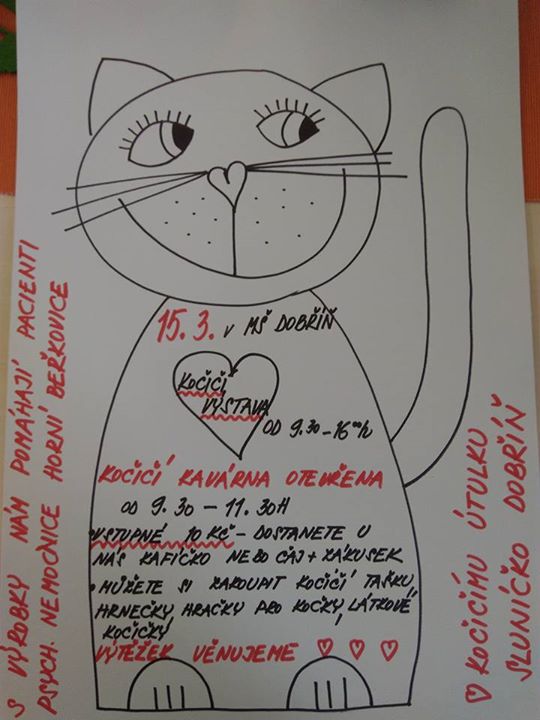 15.3. v MŠ DOBŘÍŇ
KOČIČÍ
VÝSTAVA
OD 9.30-16ººh
KOČIČÍ KAVÁRNA OTEVŘENA
OD 9.30 - 11.30H
• VSTUPNÉ 10 KČ - DOSTANETE U
NÁS KAFÍČKO NEBO ČAJ + ZÁKUSEK
• MŮŽETE SI ZAKOUPIT KOČIČÍ TAŠKU,
HRNEČKY, HRAČKY PRO KOČKY, LÁTKOVÉ
KOČIČKY
VÝTĚŽEK VĚNUJEME ♡ ♡ ♡
♡ KOČIČÍMU ÚTULKU
SLUNÍČKO DOBŘÍŇ
S VÝROBKY NÁM POMÁHAJÍ PACIENTI
PSYCH. NEMOCNICE HORNÍ BEŘKOVICE